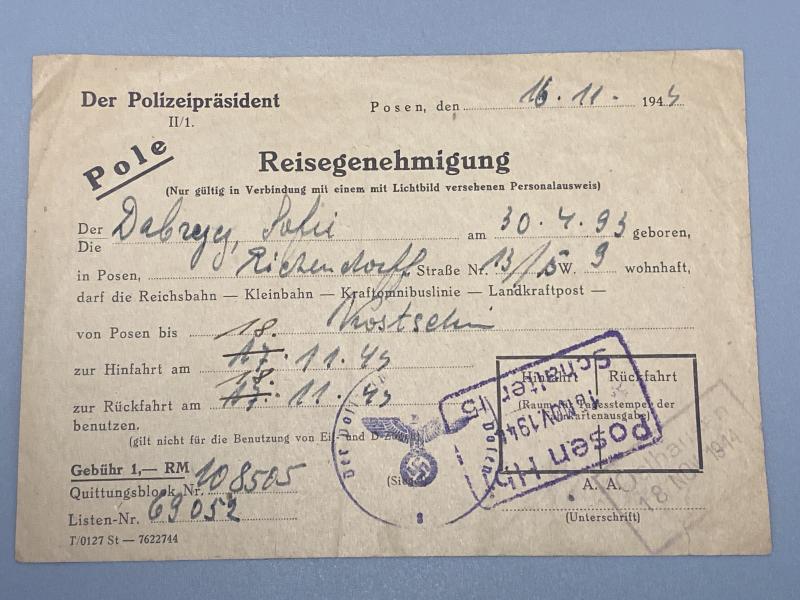 Der Polizeipräsident
II/1.
Posen, den 16.11. 1944
Pole
Reisegenehmigung
(Nur gültig in Verbindung mit einem mit Lichtbild versehenen Personalausweis)
Der
Die Sofie am 30.4.93 geboren,
in Posen, Straße Nr. 13/15 W. 9 wohnhaft,
darf die Reichsbahn — Kleinbahn — Kraftomnibuslinie — Landkraftpost —
von Posen bis Kostschin
zur Hinfahrt am 18. 17. 11. 44
zur Rückfahrt am 18. 17. 11. 44
benutzen.
(gilt nicht für die Benutzung von Eil- und D-Zügen)
Hinfahrt Rückfahrt
(Raum für Tagesstempel der
Fahrkartenausgabe)
Posen Hbf
16 NOV 1944
Schalter 15
18 NOV 1944
Gebühr 1,— RM
Quittungsblock Nr. 108505
(Siegel)
A. A.
Listen-Nr. 69052
(Unterschrift)
T/0127 St — 7622744